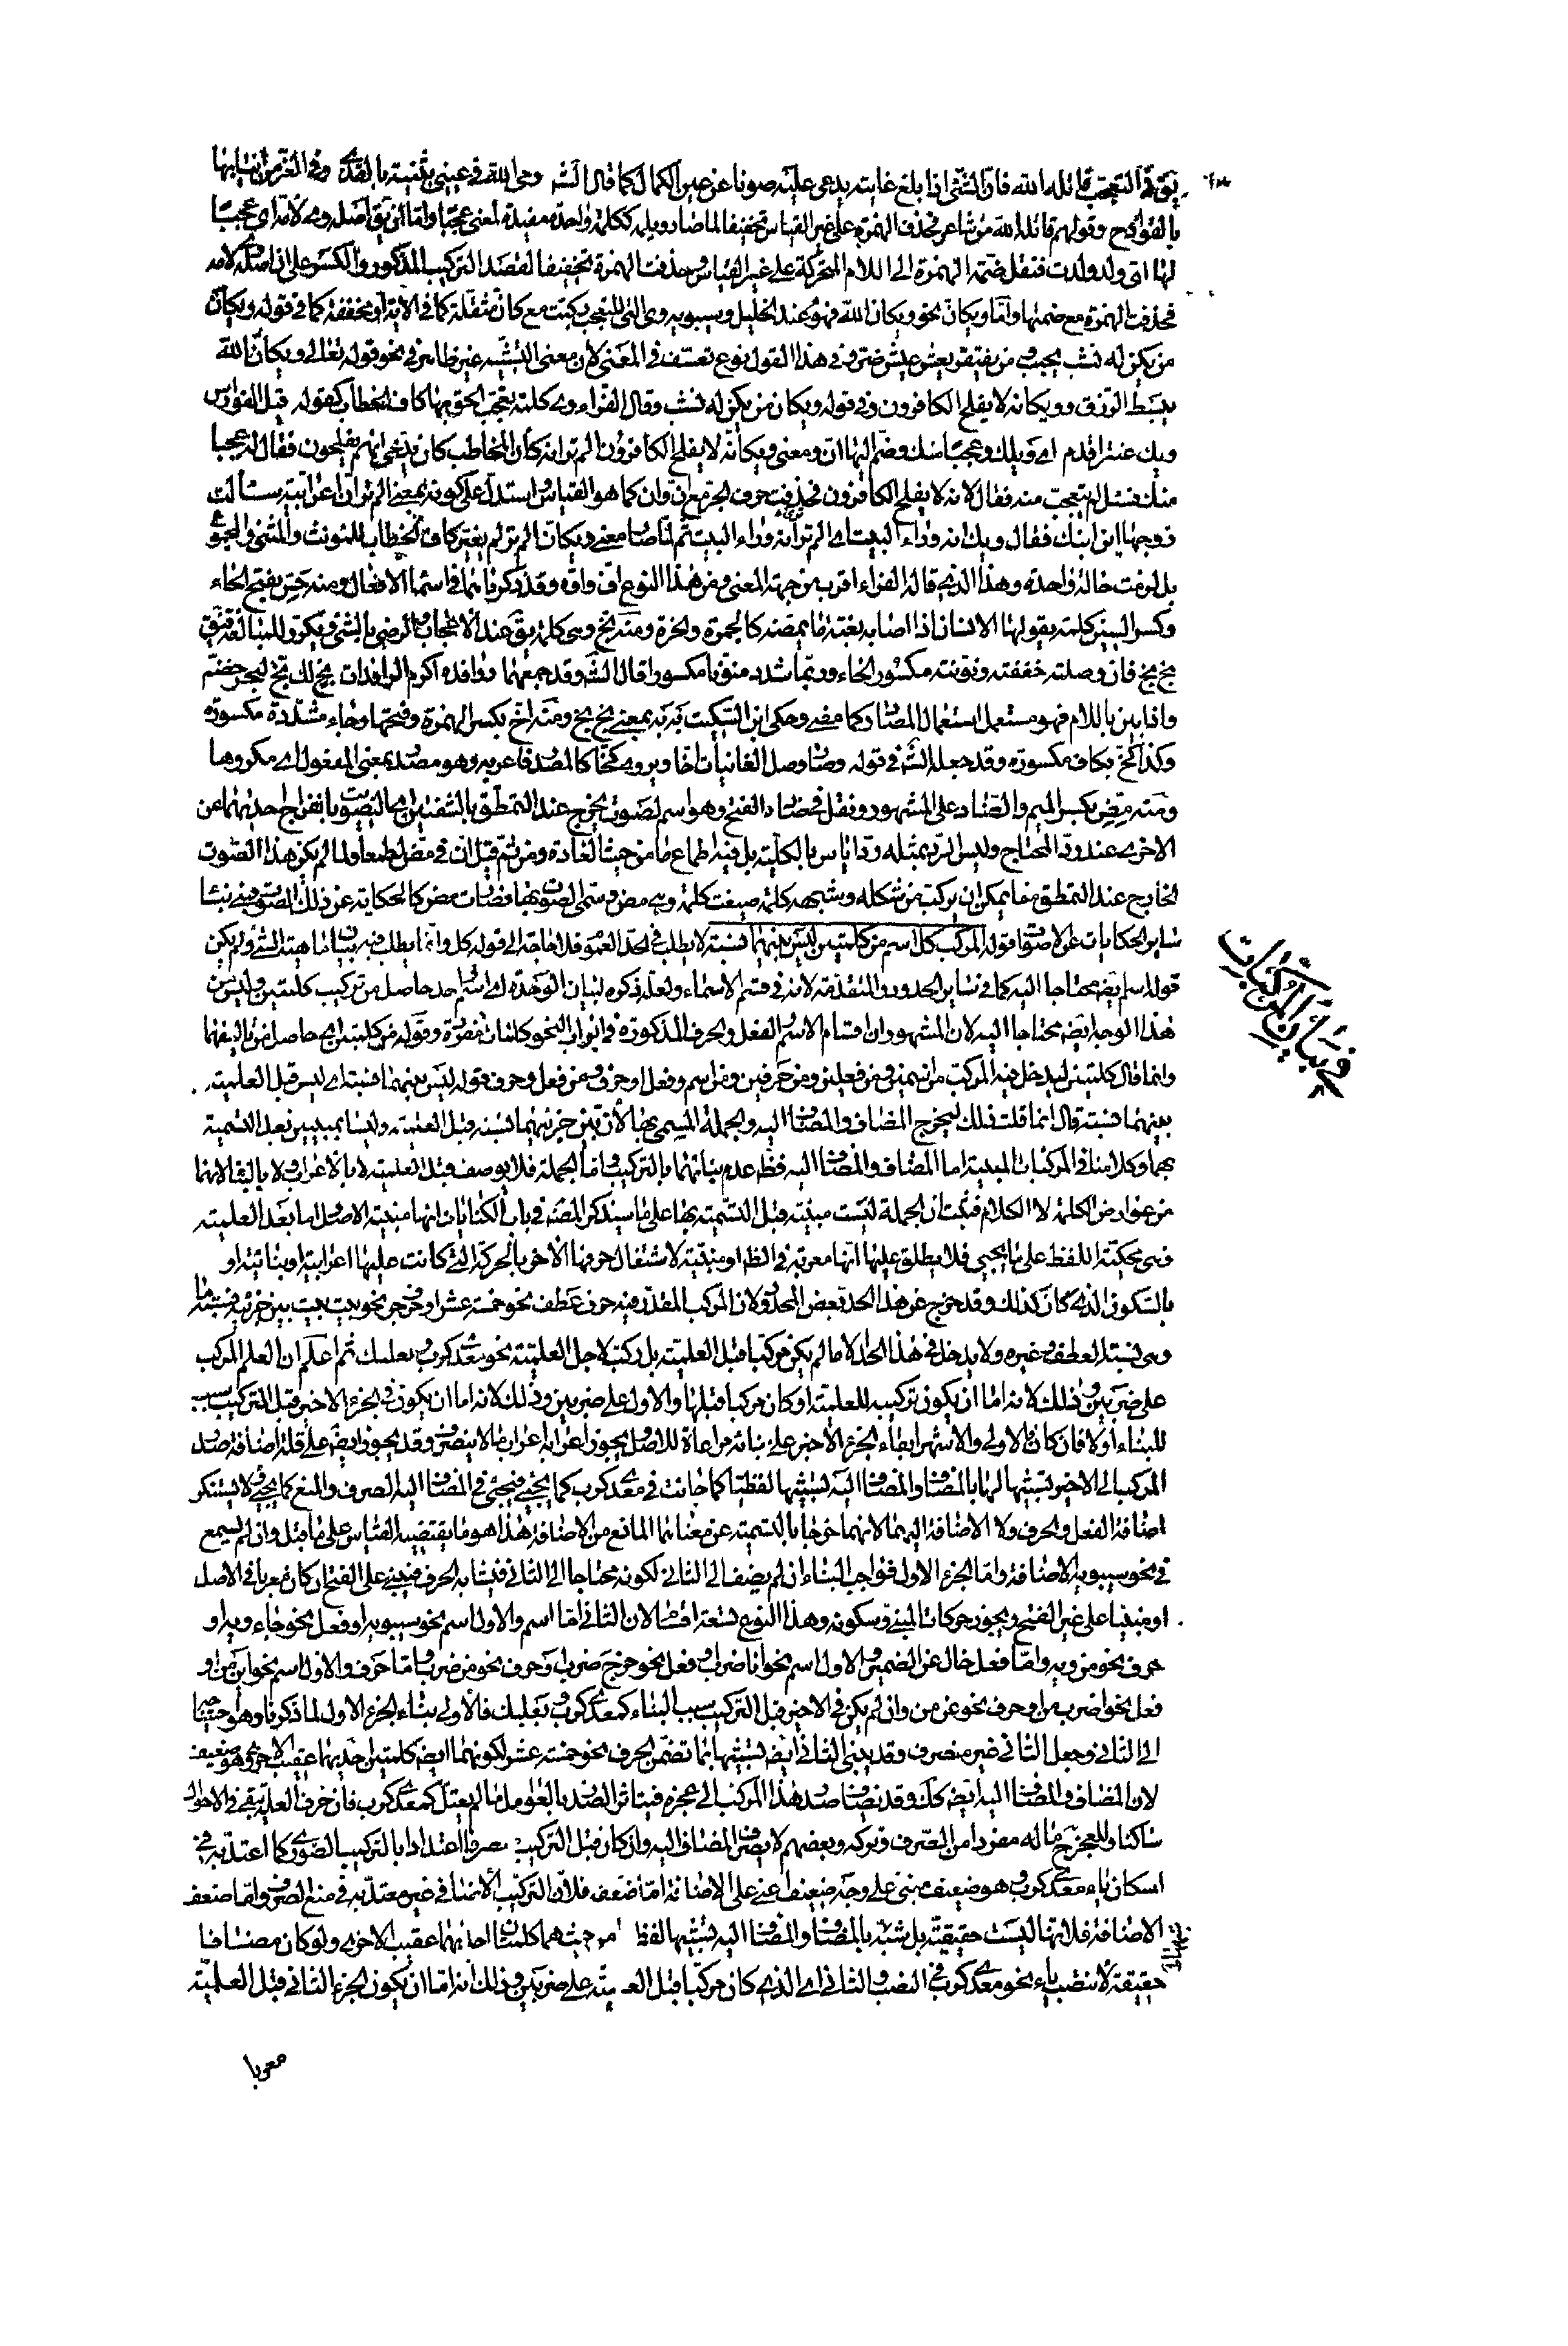 يق في التعجب قاتله الله فان الشئ اذا بلغ غايته يدعى عليه صونا عن عين الكمال كما قال الش رمى الله في عيني بثينة بالقذى وفي الغر من انيابها
بالقوادح وقولهم قاتله الله من شاعر فحذف الهمزة على غير القياس تخفيفا لما صار ويلمه ككلمة واحدة مفيدة لمعنى عجبا واما ان يق اصله وى لامه اي عجبا
لها اى ولد ولدت فنقل ضمة الهمزة الى اللام المتحركة على غير القياس وحذفت الهمزة تخفيفا لقصد التركيب المذكور والكسر على ان اصله وى لامه
فحذفت الهمزة مع ضمتها واما ويكان نحو ويكان الله فهو عند الخليل وسيبويه وى التى للتعجب ركبت مع كان مثقلة كما في الاية او مخففة كما في قوله ويكان
من يكن له نشب يحبب ومن يفتقر يعش عيش ضر وفي هذا القول نوع تعسف في المعنى لان معنى التشبيه غير ظاهر في نحو قوله تعالى ويكان الله
يبسط الرزق وويكانه لا يفلح الكافرون وفي قوله ويكان من يكن له نشب وقال الفراء وى كلمة تعجب الحق بها كاف الخطاب كقوله قيل الفوارس
ويك عنتر اقدم اي ويلك وعجبا منك وضم اليها ان ومعنى ويكانه لا يفلح الكافرون الم تر انه كأن المخاطب كان يدعى انهم يفلحون فقال له عجبا
منك فسئل لم يتعجب منه فقال لانه لا يفلح الكافرون فحذفت حرف الجر مع ان وان كما هو القياس واستدل على كونه بمعنى الم تر ان اعرابية سئالت
زوجها اين ابنك فقال ويك انه وراء البيت اى الم تر انه وراء البيت ثم لما صار معنى ويكان الم تر لم يغير كاف الخطاب للمونث والمثنى والمجموع
بل لزمت حالة واحدة وهذا الذي قاله الفراء اقرب من جهة المعنى ومن هذا النوع اف واوه وقد ذكرناهما في اسماء الافعال ومنه حس بفتح الحاء
وكسر السين كلمة يقولها الانسان اذا اصابه بغتة ما يمضه كالجمرة والحزة ومنه بخ وهى كلمة يق عند الاعجاب والرضى بالشئ ويكرر للمبالغة فيق
بخ بخ فان وصلته خففته ونونته مكسور الخاء وربما شدد منونا مكسورا قال الش وقد جمعهما روافده اكرم الرافدات بخ لك بخ لبحر خضم
واذا بين باللام فهو مستعمل استعمال المصادر كما مضى وحكى ابن السكيت به به بمعنى بخ بخ ومنه اخ بكسر الهمزة وفتحها وخاء مشددة مكسورة
وكذا كخ بكاف مكسورة وقد جعله الش في قوله وصار وصل الغانيات اخا ويروى كخا كالمصدر فاعربه وهو مصدر بمعنى المفعول اى مكروها
ومنه مض بكسر الميم والضاد على المشهور ونقل في ضاد الفتح وهو اسم لصوت يخرج عند التمطق بالشفتين اى التصويت بانفراج احديهما عن
الاخرى عند رد المحتاج وليس الرد بمثله رد اياس بالكلية بل فيه اطماع ما من حيث العادة ومن ثم قيل ان في مض لطمعا ولما لم يكن هذا الصوت
الخارج عند التمطق مما يمكن ان يركب من شكله وشبهه كلمة صيغت كلمة وهي مض وسمى الصوت بها فصارت مض كالحكاية عن ذلك الصوت فبنى بناء
ساير الحكايات عن الاصوات قوله المركب كل اسم من كلمتين ليس بينهما نسبة لا يطلب في الحد العموم فلا حاجة الى قوله كل وانما يطلب فيه بيان ماهية الشئ ولم يكن
قوله اسم ايضا محتاجا اليه كما في ساير الحدود المتقدمة لانه في قسم الاسماء ولعله ذكره لبيان الوحدة اى اسم واحد حاصل من تركيب كلمتين وليس
هذا الوجه ايضا محتاجا اليه لان المشهور ان اقسام الاسم والفعل والحرف المذكورة في ابواب النحو كلمات مفردة وقوله من كلمتين اى حاصل من تاليفهما
وانما قال كلمتين ليدخل فيه المركب من اسمين ومن فعلين ومن حرفين ومن اسم وفعل او حرف ومن فعل وحرف قوله ليس بينهما نسبة اى ليس قبل العلمية
بينهما نسبة قال انما قلت ذلك ليخرج المضاف والمضاف اليه والجملة المسمى بها لأن بين جزئيهما نسبة قبل العلمية وليسا بمبنيين بعد التسمية
بهما وكلامنا في المركبات المبنية اما المضاف والمضاف اليه فظ عدم بنائهما بالتركيب واما الجملة فلا يوصف قبل العلمية لا بالاعراب ولا بالبناء لانهما
من عوارض الكلمة لا الكلام فثبت ان الجملة ليست مبنية قبل التسمية بها على ما سيذكر المصنف في باب الكنايات انها مبنية الاصل اما بعد العلمية
فهى محكية اللفظ على ما يجيى فلا يطلق عليها انها معربة في الظ او مبنية لاشتغال حرفها الاخر بالحركة التى كانت عليها اعرابية او بنائية او
بالسكون الذي كان كذلك وقد خرج عن هذا الحد بعض المحدود لان المركب المقدر فيه حرف عطف نحو خمسة عشر او حرف جر نحو بيت بيت بين جزئيه نسبة ما
وهى نسبة العطف وغيره ولا يدخل في هذا الحد الا ما لم يكن مركبا قبل العلمية بل ركب لاجل العلمية نحو معدى كرب وبعلبك ثم اعلم ان العلم المركب
على ضربين وذلك لانه اما ان يكون تركيبه للعلمية او كان مركبا قبلها والاول على ضربين وذلك لانه اما ان يكون في الجزء الاخير قبل التركيب سبب
للبناء او لا فان كان فالاولى والاشهر ابقاء الجزء الاخير على بنائه مراعاة للاصل ويجوز اعرابه اعراب ما لا ينصرف وقد يجوز ايضا على قلة اضافة صدر
المركب الى الاخير تشبيها لهما بالمضاف والمضاف اليه تشبيها لفظيا كما جائت في معدى كرب كما يجيئ فيجئ في المضاف اليه الصرف والمنع كما يجئ ولا يستنكر
اضافة الفعل والحرف ولا الاضافة اليهما لانهما خرجا بالتسمية عن معناهما المانع من الاضافة هذا هو ما يقتضيه القياس على ما قيل وان لم يسمع
في نحو سيبويه الاضافة واما الجزء الاول فواجب البناء ان لم يضف الى الثاني لكونه محتاجا الى الثاني فيشابه الحرف فيبنى على الفتح ان كان معربا في الاصل
او مبنيا على غير الفتح ويجوز حركات المبني وسكونه وهذا النوع تسعة اقسام لان الثاني اما اسم والاول اسم نحو سيبويه او فعل نحو جاء ويه او
حرف نحو من ويه واما فعل خال عن الضمير والاول اسم نحو انا ضرب او فعل نحو خرج ضرب او حرف نحو من ضرب واما حرف والاول اسم نحو اين من او
فعل نحو اضرب من او حرف نحو عن من وان لم يكن في الاخير قبل التركيب سبب البناء كمعدى كرب وبعلبك فالأولى بناء الجزء الاول لما ذكرنا وهو احتياجه
الى الثاني وجعل الثاني غير منصرف وقد يبنى الثاني ايضا تشبيها بما تضمن الحرف نحو خمسة عشر لكونهما ايضا كلمتين احديهما عقيب الاخرى وهو ضعيف
لان المضاف والمضاف اليه ايضا كك وقد يضاف صدر هذا المركب الى عجزه فيتاثر الصدر بالعوامل ما لم يعتل كمعدى كرب فان حرف العلة يبقى في الاحوال
ساكنا وللعجز ح ما له مفردا من الصرف وتركه وبعضهم لا يصرف المضاف اليه وان كان قبل التركيب مصرفا اعتدادا بالتركيب الصورى كما اعتد به في
اسكان ياء معدى كرب وهو ضعيف مبنى على وجه ضعيف اعنى على الاضافة اما ضعفه فلأن التركيب الأضافى غير معتد به في منع الصرف واما ضعف
الاضافة فلانها ليست حقيقية بل شبه بالمضاف والمضاف اليه تشبيها لفظا من حيث هما كلمتان احديهما عقيب الاخرى ولو كان مضافا
حقيقة لانتصب ياء نحو معدى كرب في النصب والثاني اى الذي كان مركبا قبل العلمية على ضربين وذلك انه اما ان يكون الجزء الثاني قبل العلمية
معربا
في بيان المركبات